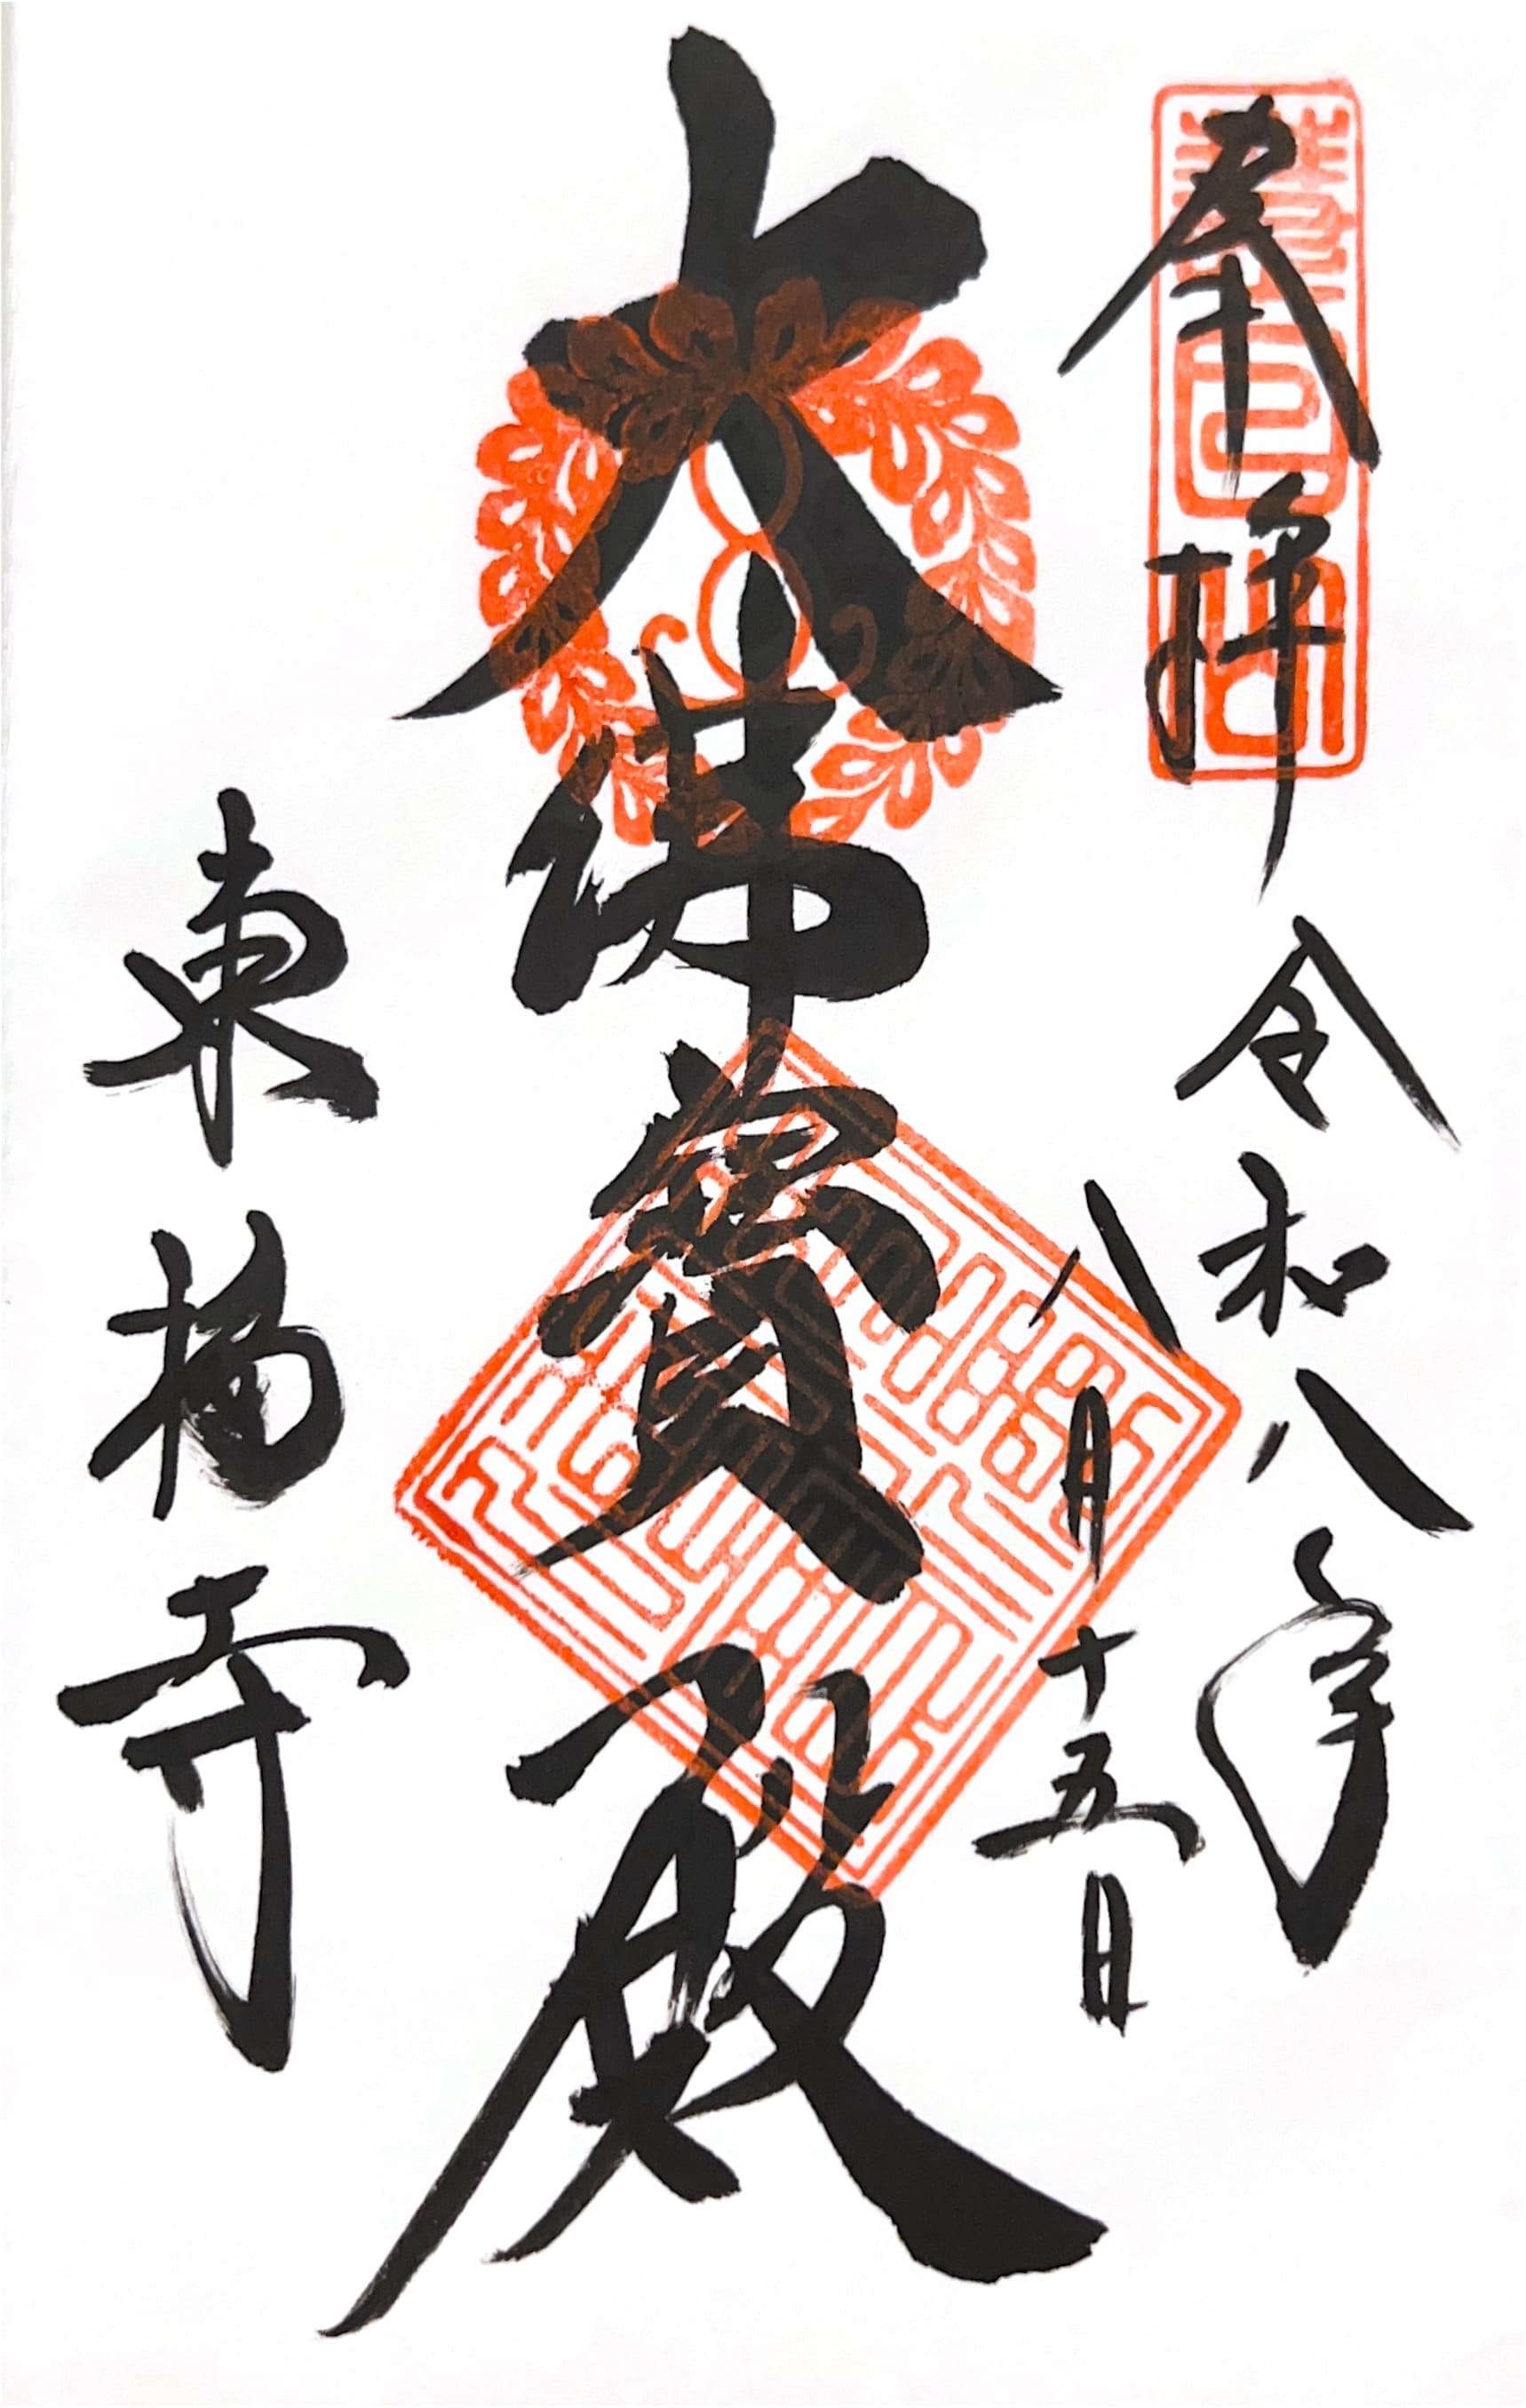 奉拝
慧日山
令和八年
八月十五日
大佛寶殿
東福寺